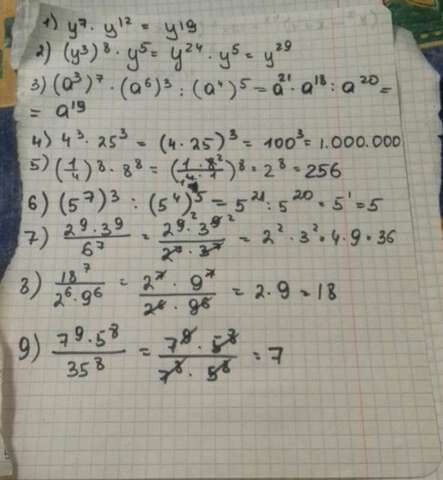 1) y⁷ · y¹² = y¹⁹
2) (y³)⁸ · y⁵ = y²⁴ · y⁵ = y²⁹
3) (a³)⁷ · (a⁶)³ : (a⁴)⁵ = a²¹ · a¹⁸ : a²⁰ =
= a¹⁹
4) 4³ · 25³ = (4 · 25)³ = 100³ = 1.000.000
5) (1/4)⁸ · 8⁸ = (1 · 8²/4₁ · 1)⁸ = 2⁸ = 256
6) (5⁷)³ : (5⁴)⁵ = 5²¹ : 5²⁰ = 5¹ = 5
7) 2⁹ · 3⁹/6⁷ = 2⁹ ² · 3⁹ ²/2⁷ · 3⁷ = 2² · 3² = 4 · 9 = 36
8) 18⁷/2⁶ · 9⁶ = 2⁷ · 9⁷/2⁶ · 9⁶ = 2 · 9 = 18
9) 7⁹ · 5⁸/35⁸ = 7⁹ · 5⁸/7⁸ · 5⁸ = 7